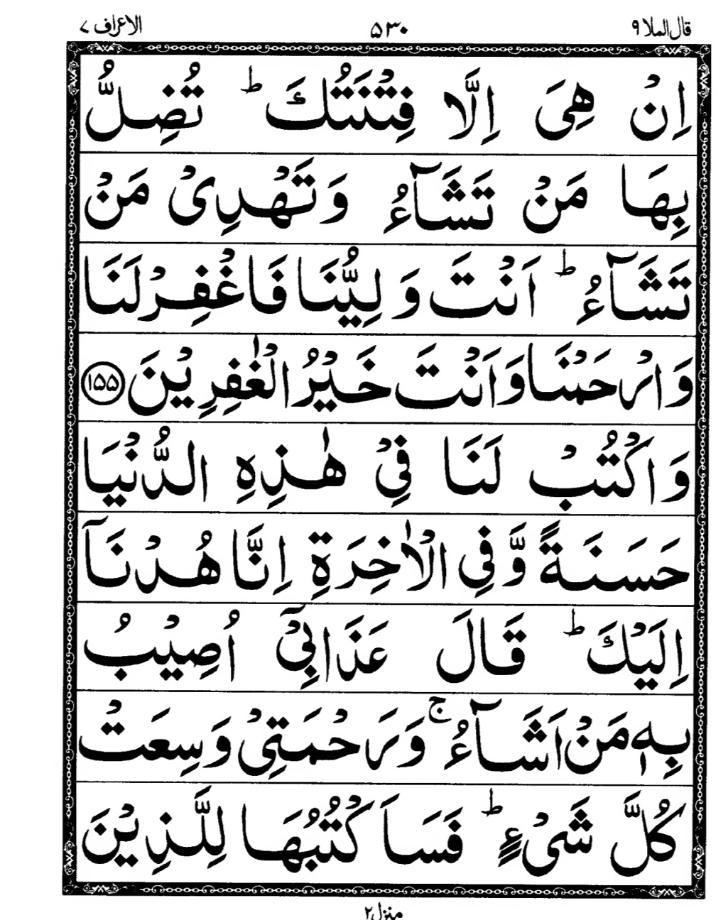 قال الملا ٩ ۵۳۰ الاعراف ٧
اِنْ هِیَ اِلَّا فِتْنَتُكَ ؕ تُضِلُّ
بِهَا مَنْ تَشَآءُ وَتَهْدِیْ مَنْ
تَشَآءُ ؕ اَنْتَ وَلِیُّنَا فَاغْفِرْ لَنَا
وَارْحَمْنَا وَاَنْتَ خَیْرُ الْغٰفِرِیْنَ ﴿۱۵۵﴾
وَاكْتُبْ لَنَا فِیْ هٰذِهِ الدُّنْیَا
حَسَنَةً وَّفِی الْاٰخِرَةِ اِنَّا هُدْنَاۤ
اِلَیْكَ ؕ قَالَ عَذَابِیْۤ اُصِیْبُ
بِهٖ مَنْ اَشَآءُ ۚ وَرَحْمَتِیْ وَسِعَتْ
كُلَّ شَیْءٍ ؕ فَسَاَكْتُبُهَا لِلَّذِیْنَ
منزل ۲